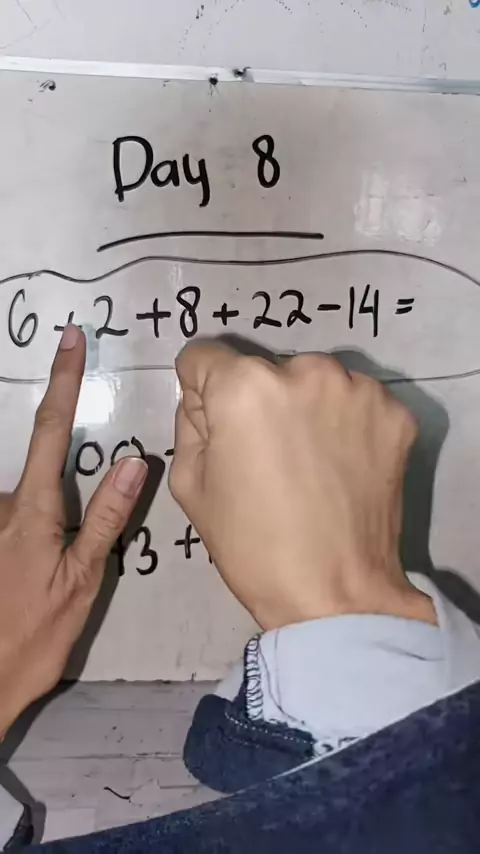 Day 8
6 + 2 + 8 + 22 - 14 =
00
3 +